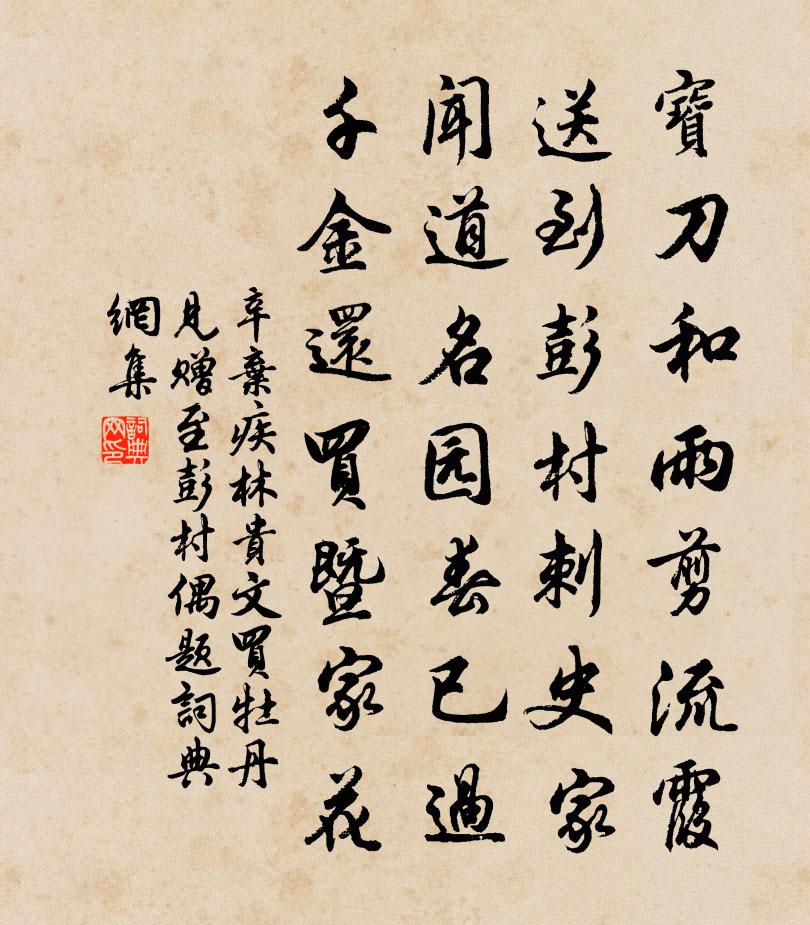 寶刀和雨剪流霞
送到彭村刺史家
聞道名园春已過
千金還買暨家花
辛棄疾林貴文買牡丹
見贈至彭村偶題詞典
網集
詞典
网印